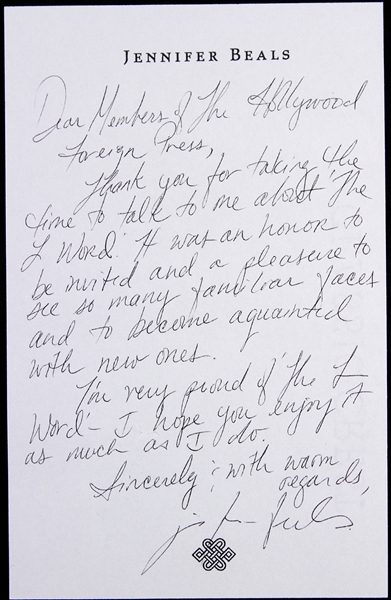 JENNIFER BEALS
Dear Members of The Hollywood
Foreign Press,
Thank you for taking the
time to talk to me about 'The
L Word.' It was an honor to
be invited and a pleasure to
see so many familiar faces
and to become aquainted
with new ones.
I'm very proud of 'The L
Word'- I hope you enjoy it
as much as I do.
Sincerely & with warm
regards,